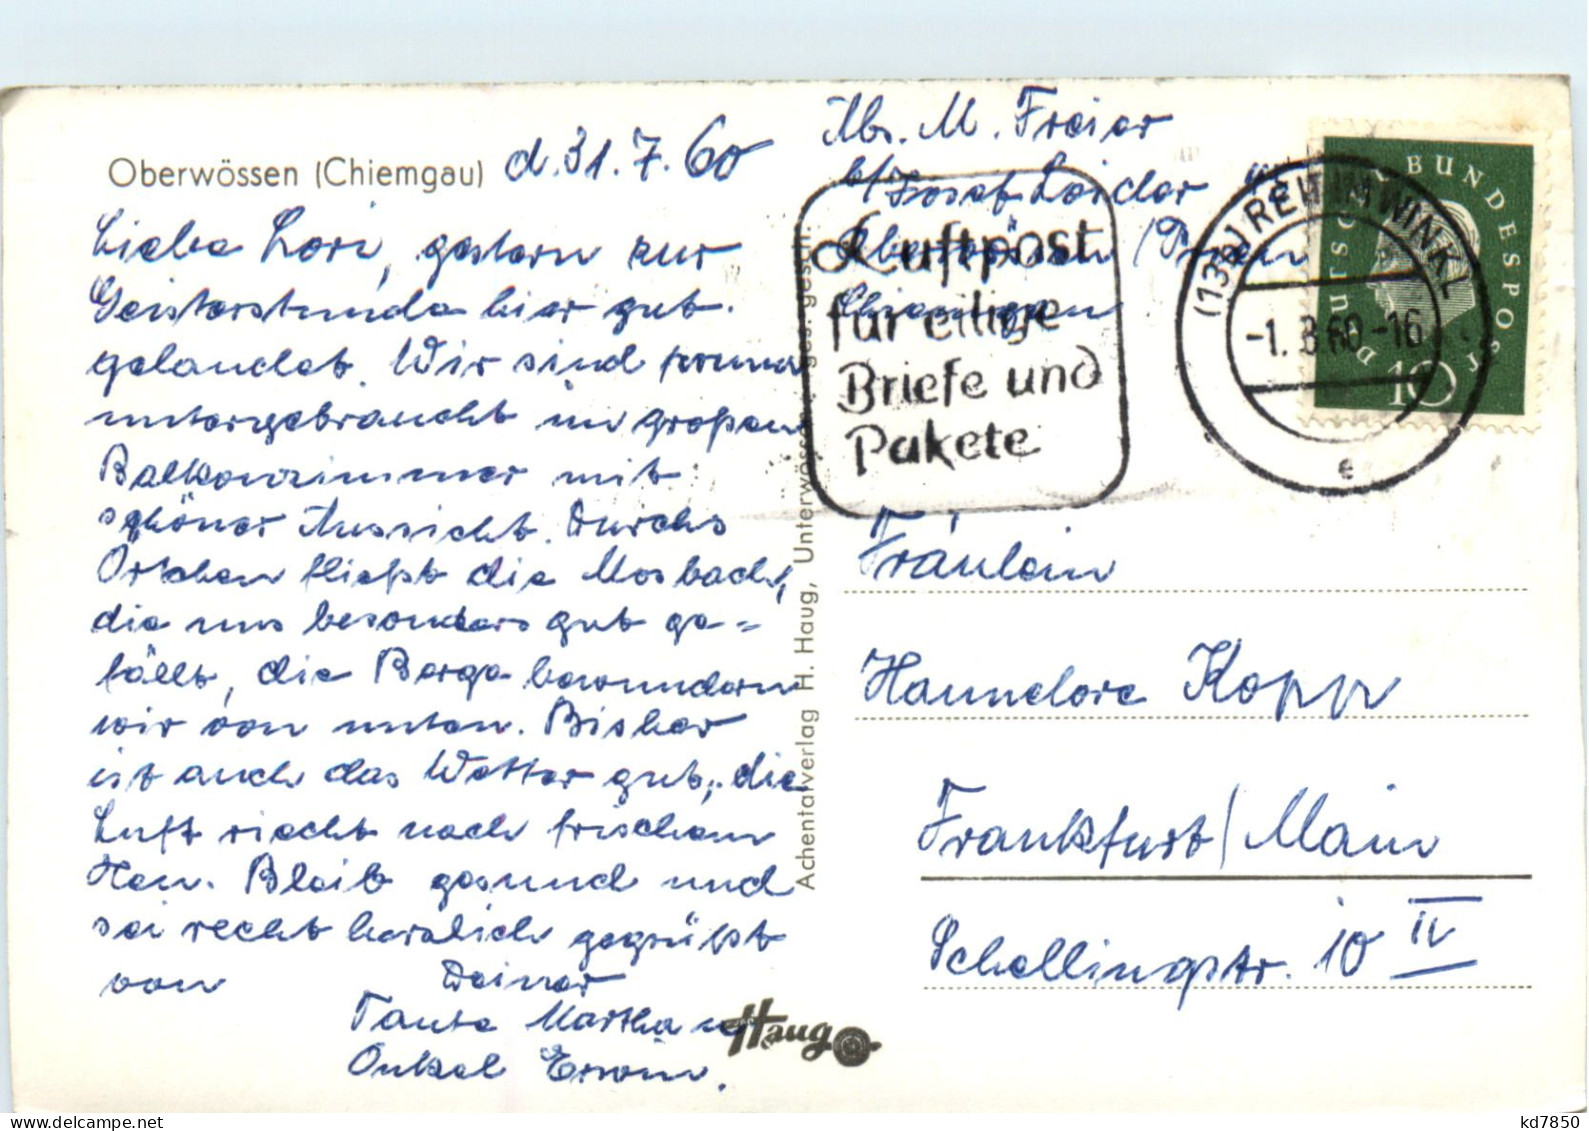 Oberwössen (Chiemgau) d. 31.7.60
Liebe Lori, gestern zur
Geisterstunde hier gut
gelandet. Wir sind prima
untergebraucht im großen
Balkonzimmer mit
schöner Aussicht. Durchs
Örtchen fließt die Mosbach,
die uns besonders gut ge=
fällt, die Berge bewundern
wir von unten. Bisher
ist auch das Wetter gut, die
Luft riecht nach frischem
Heu. Bleib gesund und
sei recht herzlich gegrüßt
von Deiner
Tante Martha u.
Onkel Erwin.
Haug
Achentalverlag H. Haug, Unterwössen, ges. gesch.
Abs. M. Freier
b/Josef Loider
Oberwössen / Prien
Chiemgau
Luftpost
für eilige
Briefe und
Pakete
(13b) REIT IM WINKL
-1.8.60-16
e
DEUTSCHE BUNDESPOST
10
Fräulein
Hannelore Kopp
Frankfurt/Main
Schellingstr. 10 IV
kd7850